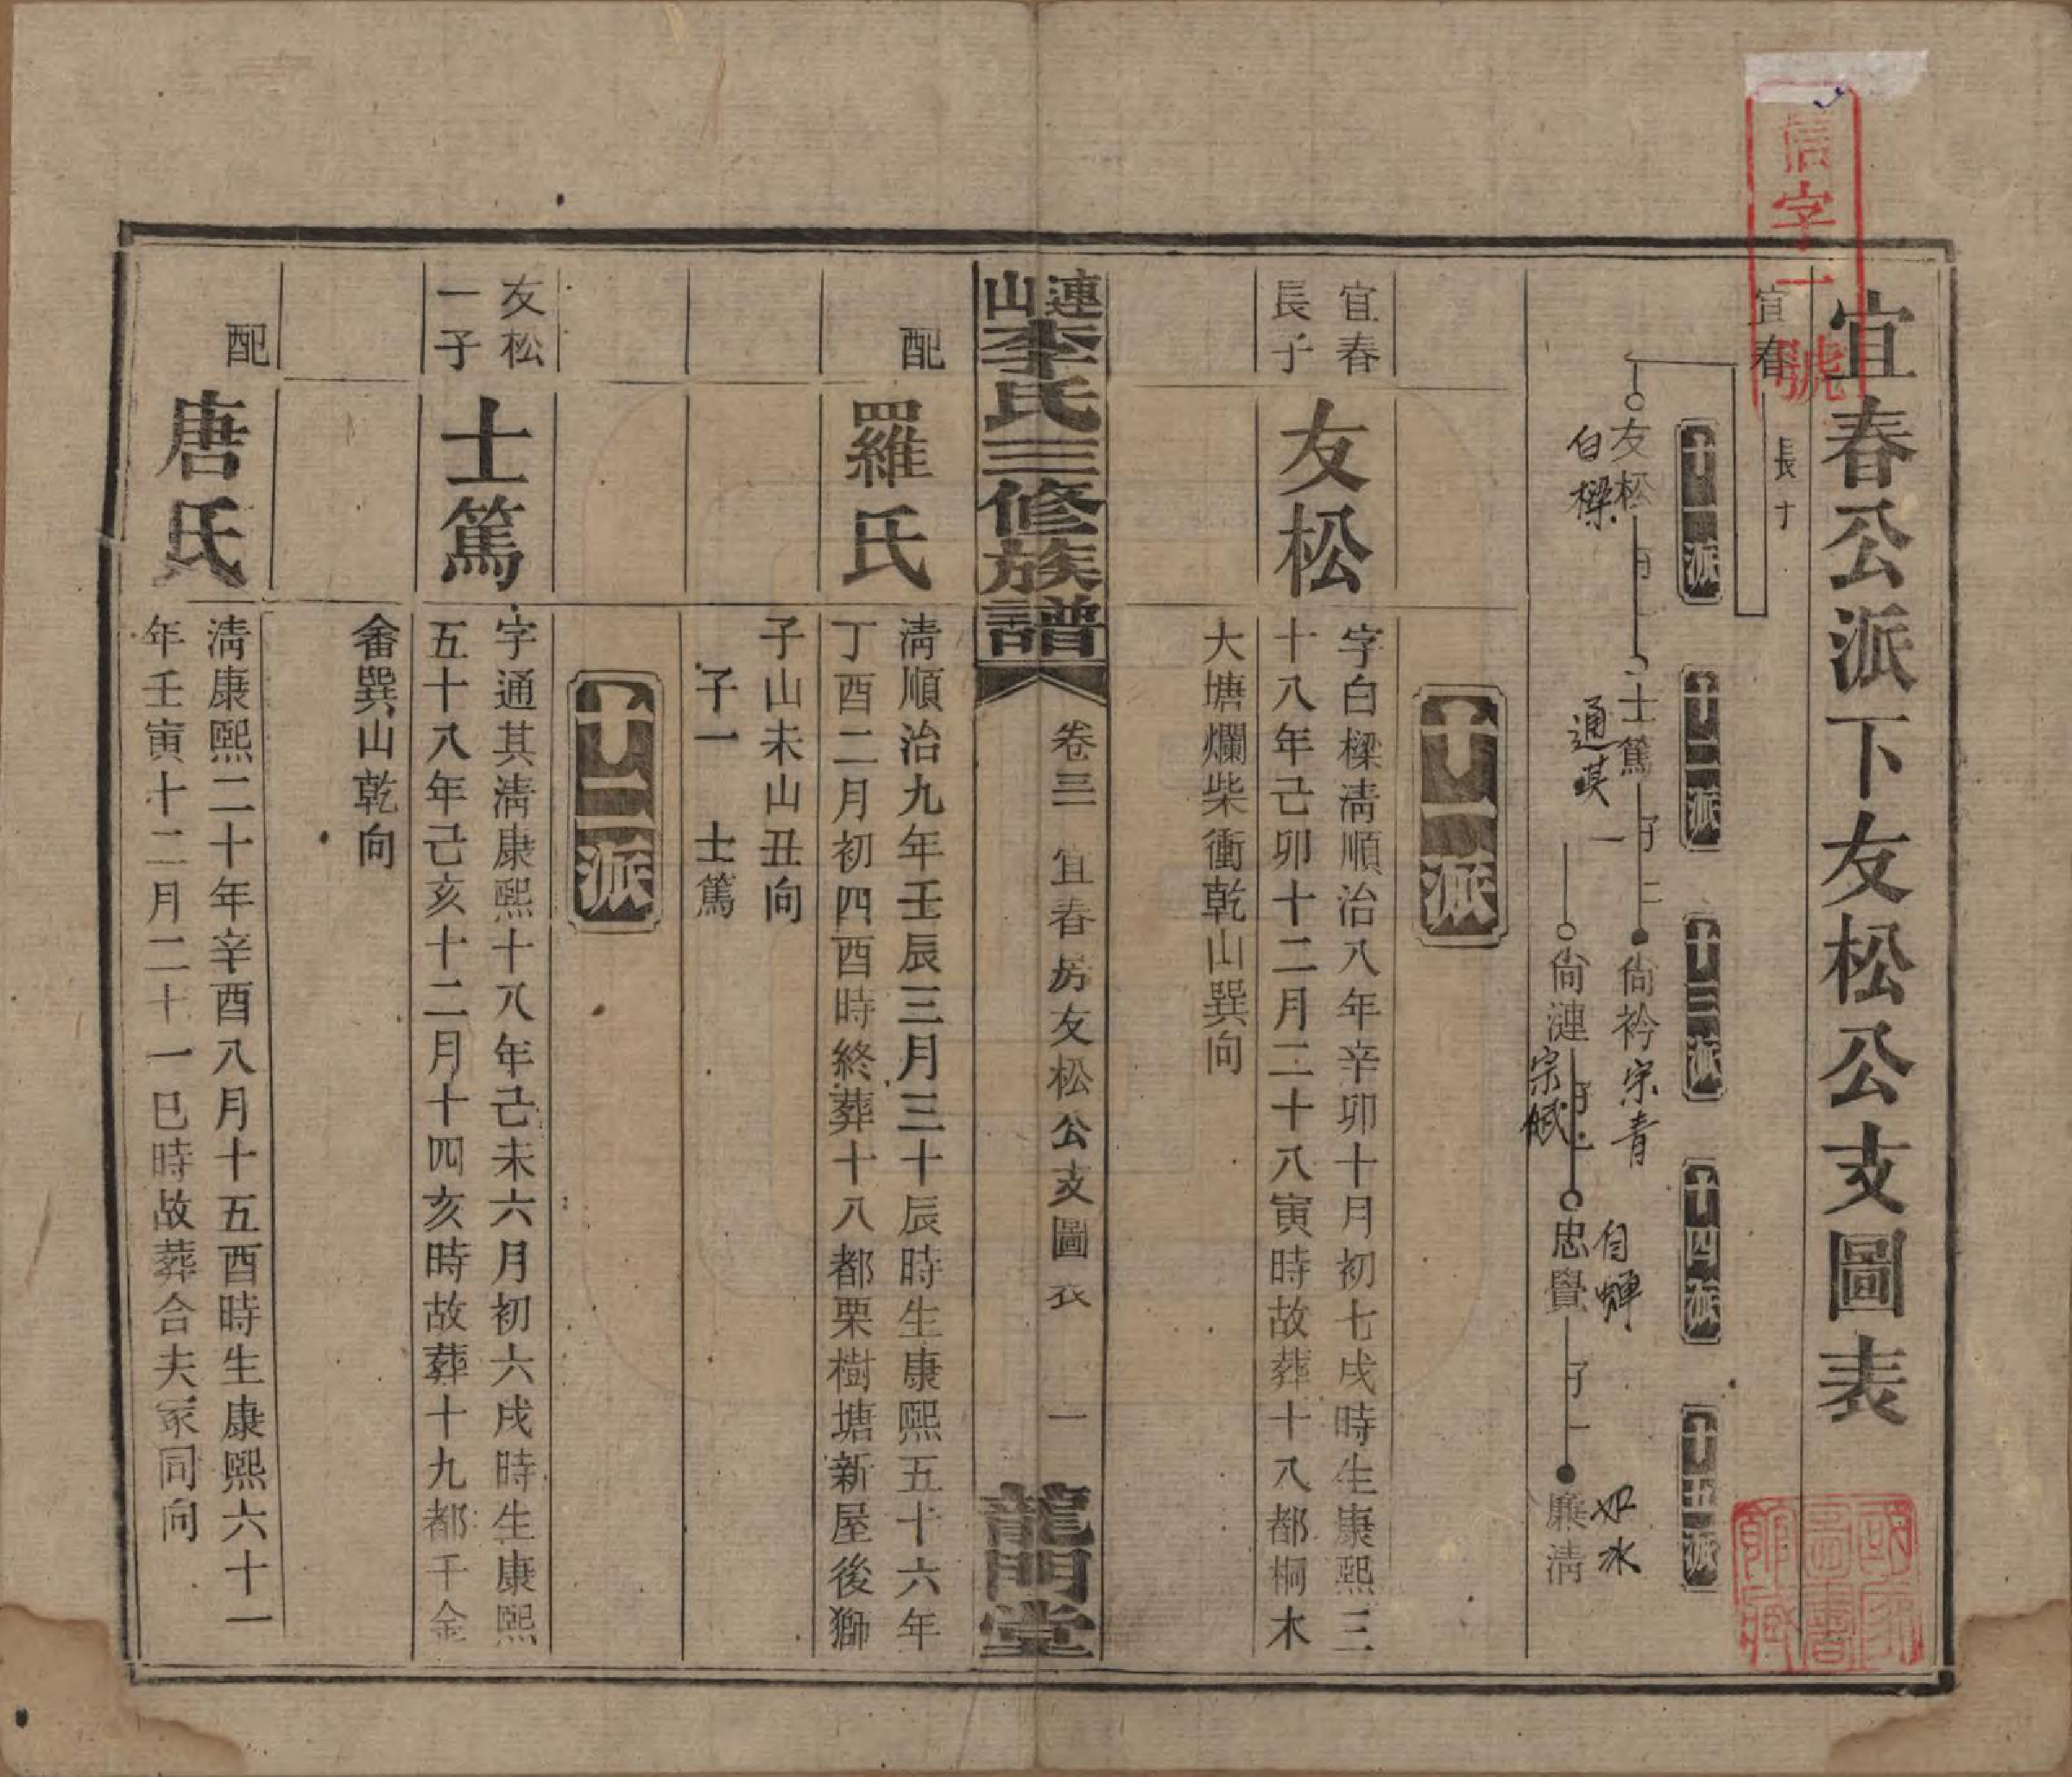 宜春公派下友松公支圖表
信字一號
宜春
長子
十一派
十二派
十三派
十四派
十五派
友松
白樑
士篤
通其
子二
尙衿
宗青
一
尙漣
宗賦
忠貴
自蟬
子一
廉淸
如水
十一派
宜春長子
友松
字白樑淸順治八年辛卯十月初七戌時生康熙三
十八年己卯十二月二十八寅時故葬十八都桐木
大塘爛柴衝乾山巽向
連山李氏三修族譜
卷三
宜春房友松公支圖表
一
龍門堂
配
羅氏
淸順治九年壬辰三月三十辰時生康熙五十六年
丁酉二月初四酉時終葬十八都栗樹塘新屋後獅
子山未山丑向
子一 士篤
十二派
友松一子
士篤
字通其淸康熙十八年己未六月初六戌時生康熙
五十八年己亥十二月十四亥時故葬十九都千金
畬巽山乾向
配
唐氏
淸康熙二十年辛酉八月十五酉時生康熙六十一
年壬寅十二月二十一巳時故葬合夫冢同向